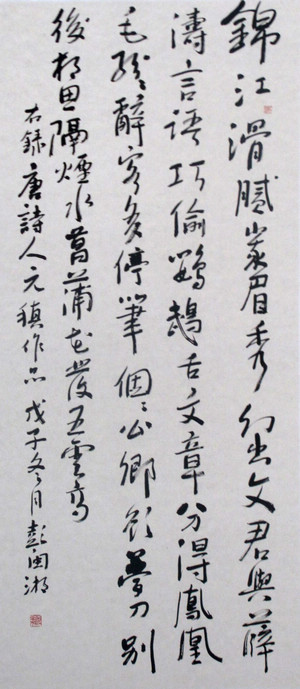 錦江滑膩峩眉秀幻出文君與薛
濤言語巧偷鸚鵡舌文章分得鳳凰
毛紛〻辭客多停筆個〻公卿欲夢刀別
後相思隔煙水菖蒲花發五雲高
右錄唐詩人元稹作品戊子冬月彭閩湘